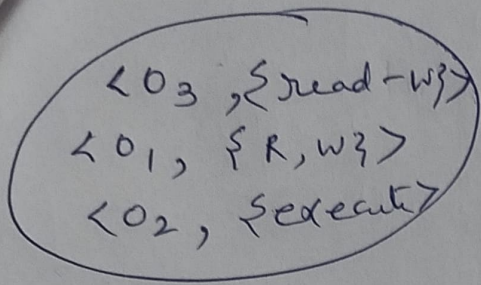 <O3, {read-W}>
<O1, {R, W}>
<O2, {execute>